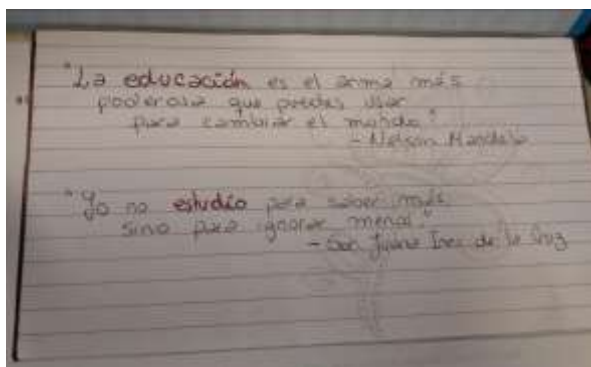 "La educación es el arma más
poderosa que puedes usar
para cambiar el mundo."
- Nelson Mandela
"Yo no estudio para saber más,
sino para ignorar menos."
- Sor Juana Ines de la Cruz